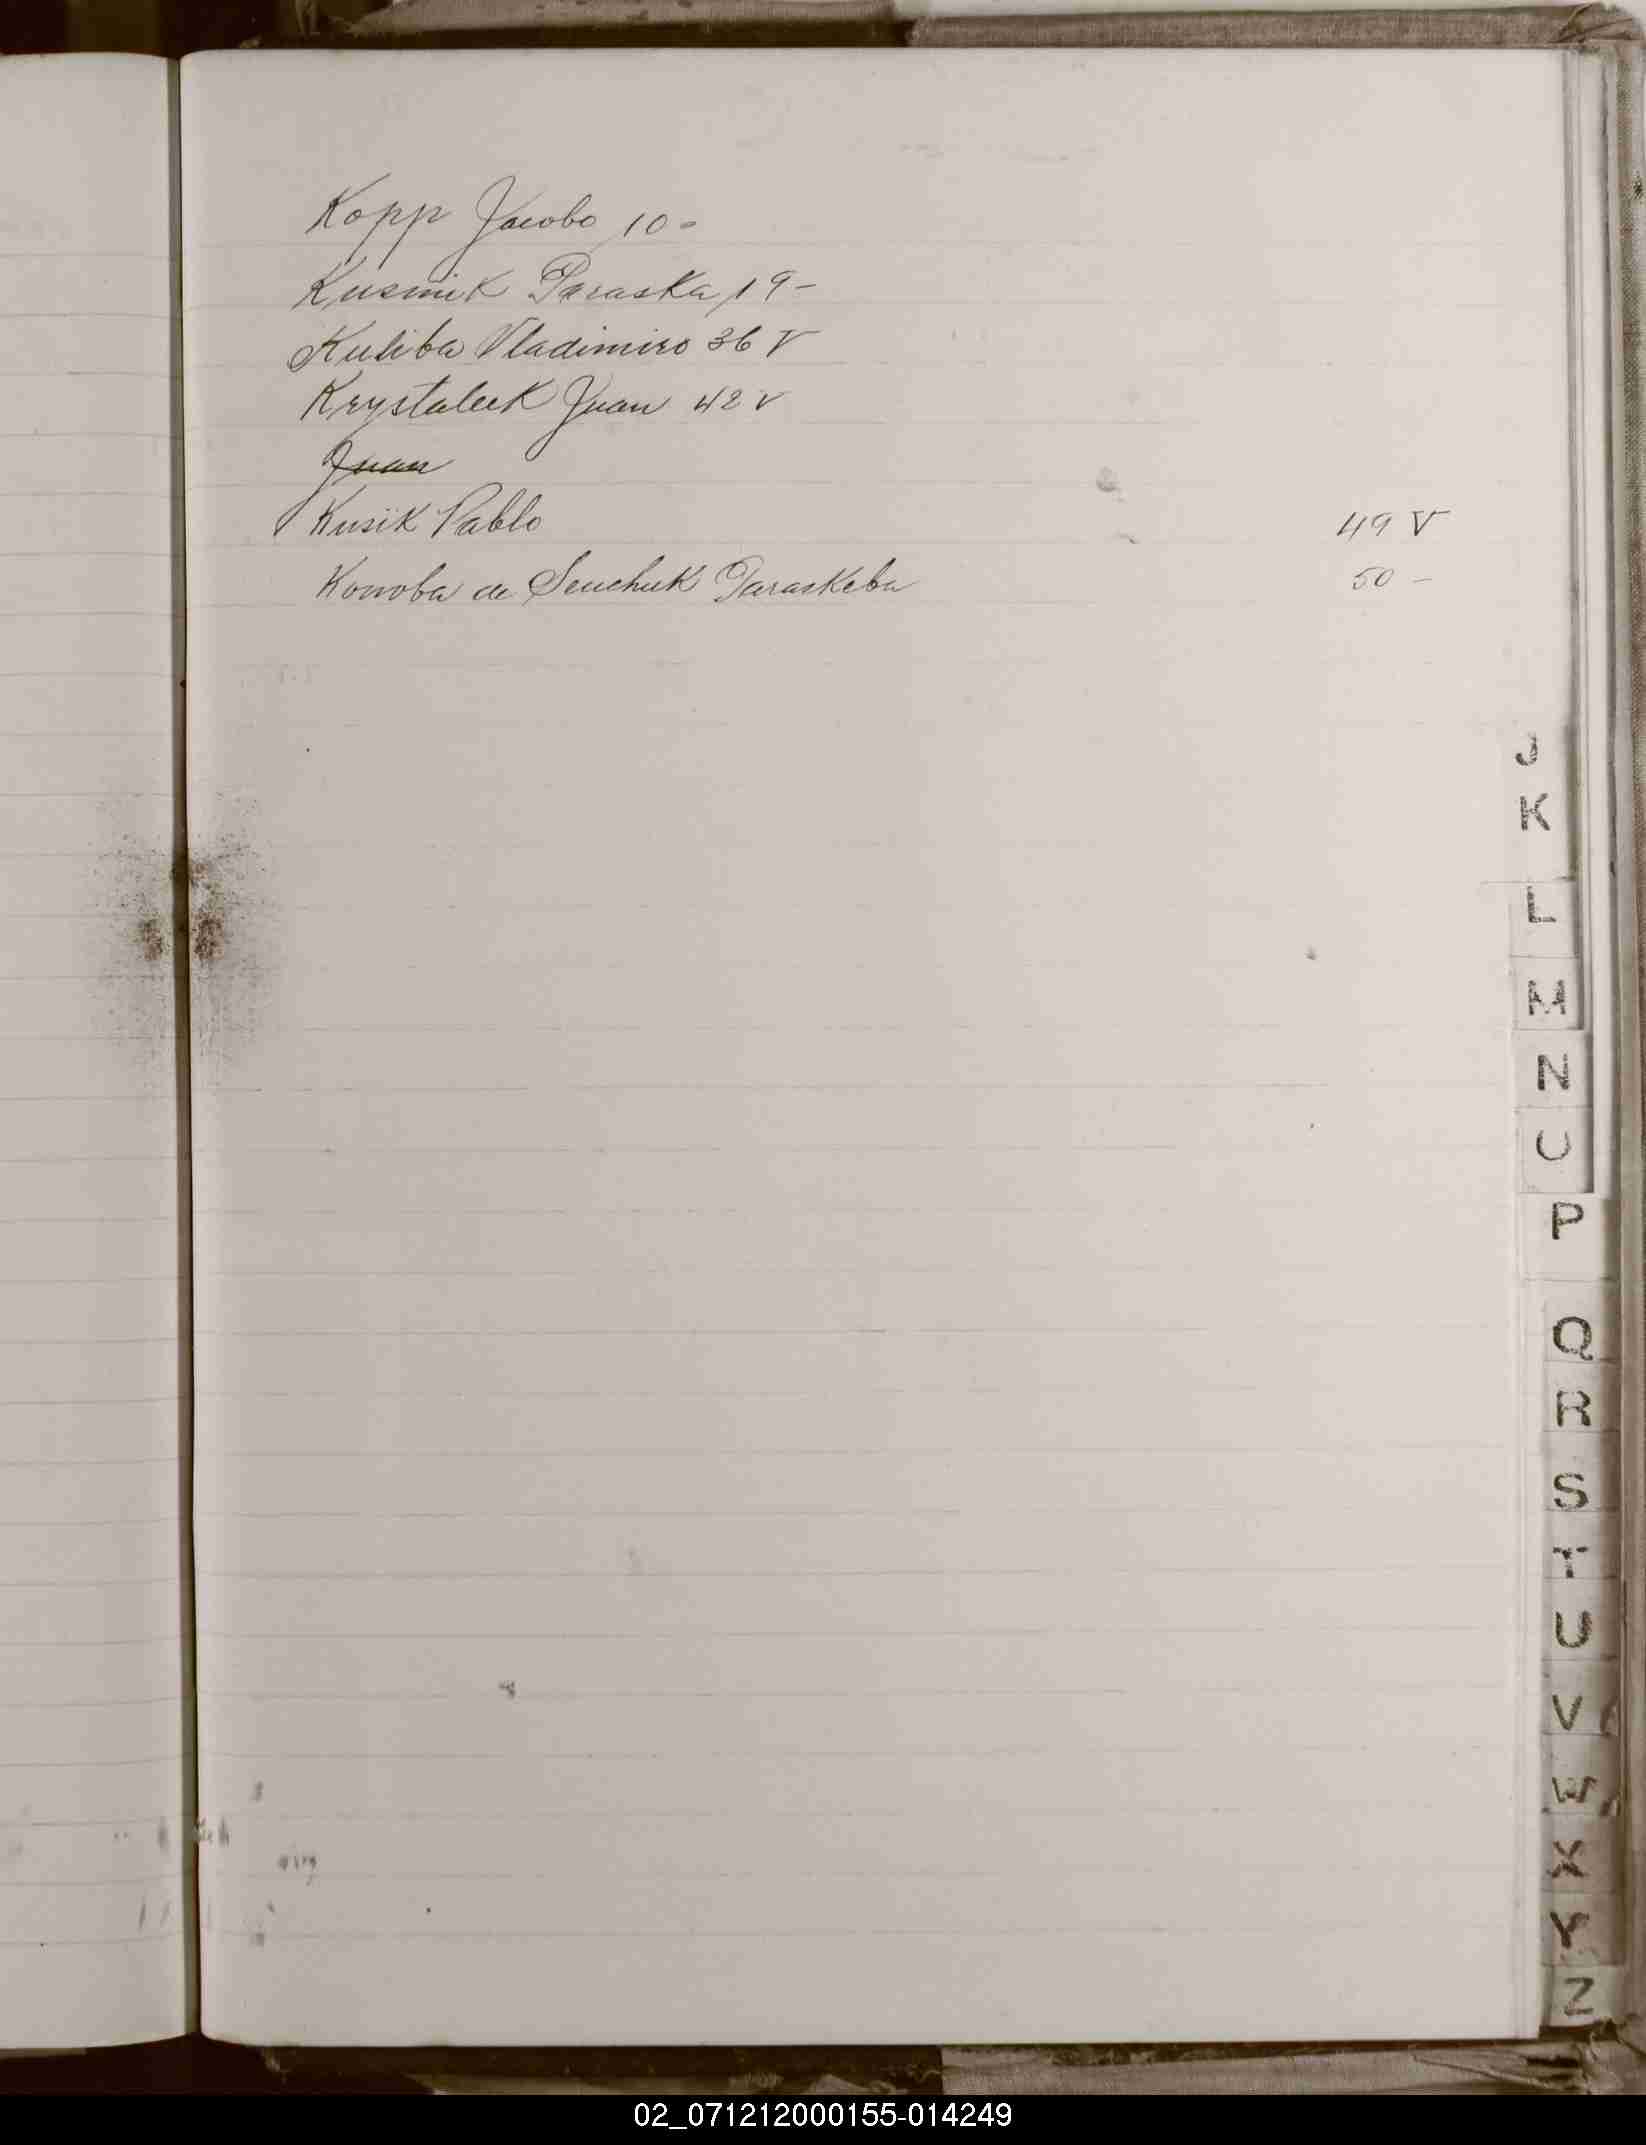 Kopp Jacobo 10-
Kusmik Paraska 19-
Kuliba Vladimiro 36 V
Krystaleek Juan 42 v
Juan
Kusik Pablo 49 V
Konoba de Senchuk Paraskeba 50 -
J
K
L
M
N
O
P
Q
R
S
T
U
V
W
X
Y
Z
02_071212000155-014249